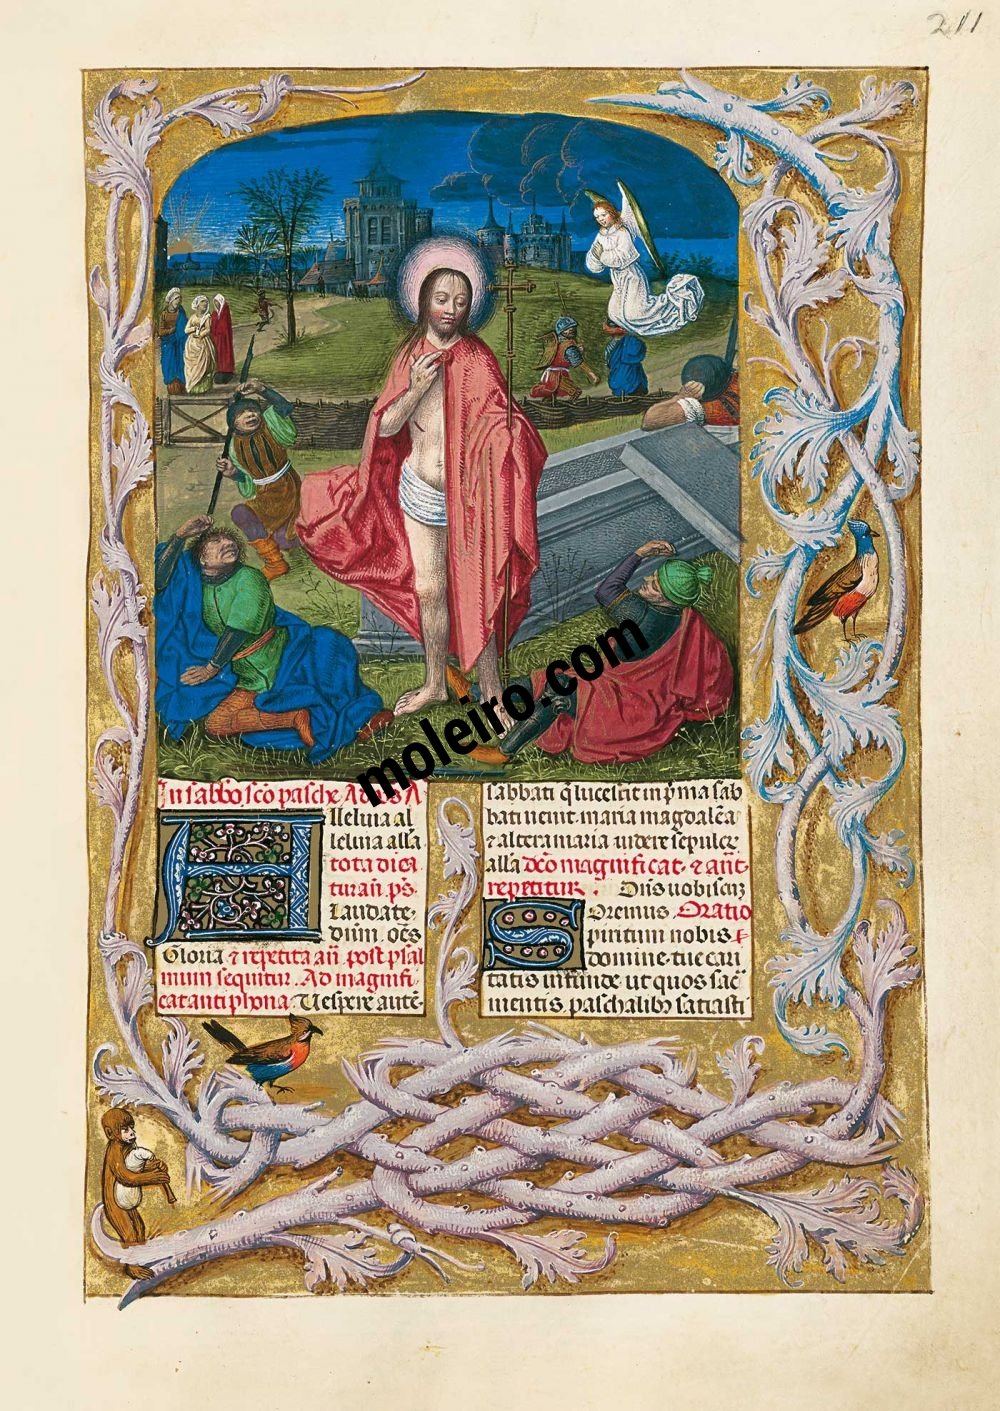 211
moleiro.com
In sabbo sco pasche Ad vs A
lleluia al
leluia alla
tota dica
tur an ps
Laudate
dium oes
Gloria & repetita an post psal
mum sequitur. Ad magnifi
cat antiphona. Vespere aute
sabbati q lucescit in pma sab
bati venit maria magdalea
& altera maria videre sepulcr
alla dco magnificat & ant
repetitur. Dns vobiscu
Oremus Oratio
Spiritum nobis
domine tue cari
tatis infunde ut quos sac
mentis paschalibus satiasti